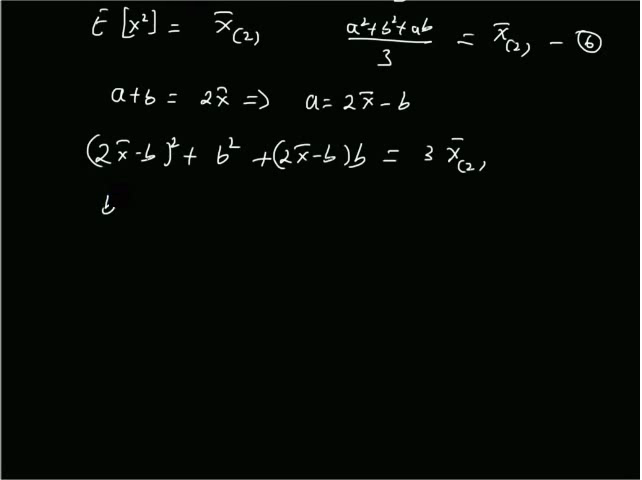 E [x²] = x̄₍₂₎   (a²+b²+ab)/3 = x̄₍₂₎ - ⑥
a+b = 2x̄ => a = 2x̄ - b
(2x̄-b)² + b² + (2x̄-b)b = 3 x̄₍₂₎